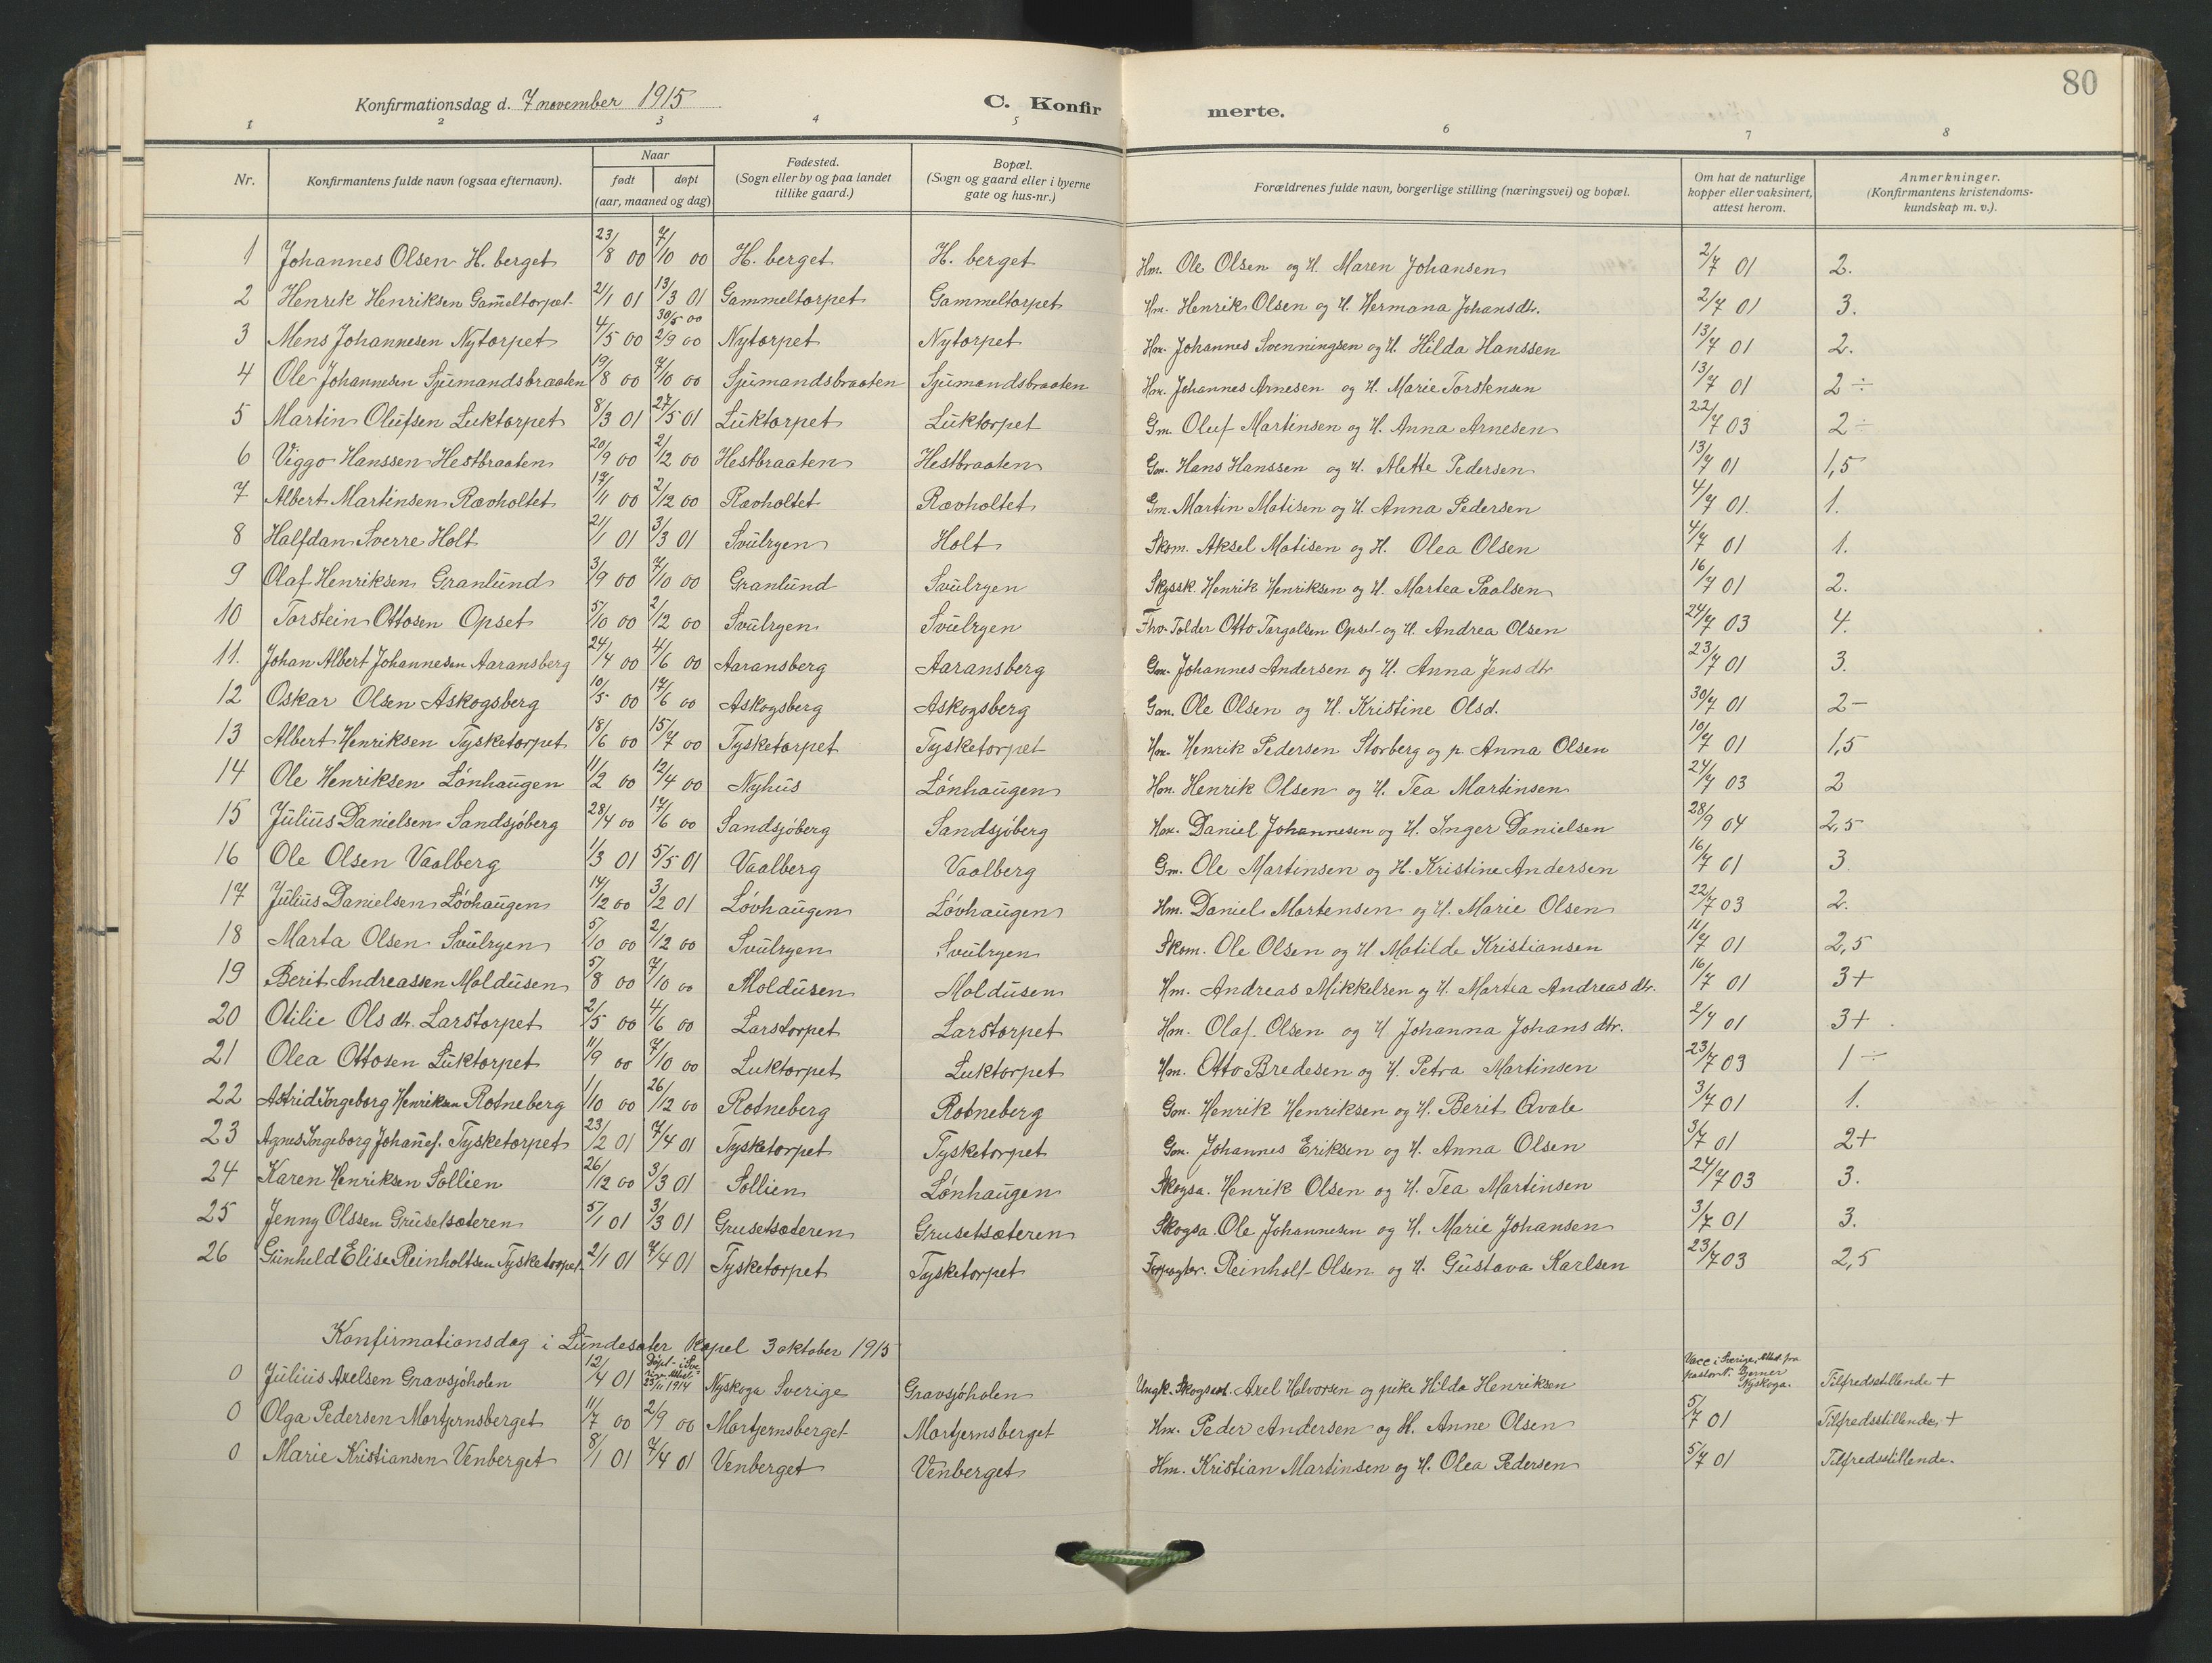 80
Konfirmationsdag d. 7 november 1915 C. Konfir merte.
1 2 3 4 5 6 7 8
Nr. Konfirmantens fulde navn (ogsaa efternavn). Naar født døpt (aar, maaned og dag) Fødested. (Sogn eller by og paa landet tillike gaard.) Bopæl. (Sogn og gaard eller i byerne gate og hus-nr.) Forældrenes fulde navn, borgerlige stilling (næringsvei) og bopæl. Om hat de naturlige kopper eller vaksinert, attest herom. Anmerkninger. (Konfirmantens kristendoms-kundskap m. v.).
1 Johannes Olsen H. berget 23/8 00 7/10 00 H. berget H. berget Hm. Ole Olsen og H. Maren Johansen 2/7 01 2.
2 Henrik Henriksen Gam̄eltorpet 2/1 01 13/3 01 Gammeltorpet Gammeltorpet Hm. Henrik Olsen og H. Hermana Johansdtr. 2/7 01 3.
3 Mens Johannesen Nytorpet 4/5 00 30/5 00 2/9 00 Nytorpet Nytorpet Hm. Johannes Svenningsen og H. Hilda Hanssen 13/7 01 2.
4 Ole Johannesen Sjumandsbraaten 19/8 00 7/10 00 Sjumandsbraaten Sjumandsbraaten Hm. Johannes Arnesen og H. Marie Torstensen 13/7 01 2 ÷
5 Martin Olufsen Luktorpet 8/3 01 27/5 01 Luktorpet Luktorpet Gm. Oluf Martinsen og H. Anna Arnesen 22/7 03 2 ÷
6 Viggo Hanssen Hestbraaten 20/9 00 2/12 00 Hestbraaten Hestbraaten Gm. Hans Hanssen og H. Alette Pedersen 13/7 01 1,5
7 Albert Martinsen Ravholtet 17/11 00 2/12 00 Ravholtet Ravholtet Gm. Martin Matisen og H. Anna Pedersen 4/7 01. 1.
8 Halfdan Sverre Holt 21/1 01 3/3 01 Svulryen Holt Skom. Aksel Matisen og H. Olea Olsen 4/7 01 1.
9 Olaf Henriksen Granlund 3/9 00 7/10 00 Granlund Svulryen Skyssk. Henrik Henriksen og H. Martea Paalsen 16/7 01 2.
10 Torstein Ottosen Opset 5/10 00 2/12 00 Svulryen Svulryen Fhv. Tolder Otto Torgalsen Opset og H. Andrea Olsen 24/7 03 4.
11. Johan Albert Johannesen Aaransberg 24/4 00 4/6 00 Aaransberg Aaransberg Gm. Johannes Andersen og H. Anna Jensdtr 23/7 01 3.
12 Oskar Olsen Askogsberg 10/5 00 17/6 00 Askogsberg Askogsberg Gm. Ole Olsen og H. Kristine Olsd. 30/7 01 2 -
13 Albert Henriksen Tysketorpet 18/6 00 15/7 00 Tysketorpet Tysketorpet Hm. Henrik Pedersen Storberg og p. Anna Olsen 10/7 01 1,5
14 Ole Henriksen Lønhaugen 11/2 00 12/4 00 Nyhus Lønhaugen Hm. Henrik Olsen og H. Tea Martinsen 24/7 03 2
15 Julius Danielsen Sandsjøberg 28/4 00 17/6 00 Sandsjøberg Sandsjøberg Hm. Daniel Johannesen og H. Inger Danielsen 28/9 04 2,5
16 Ole Olsen Vaalberg 1/3 01 5/5 01 Vaalberg Vaalberg Gm. Ole Martinsen og H. Kristine Andersen 16/7 01 3
17 Julius Danielsen Løvhaugen 14/12 00 3/2 01 Løvhaugen Løvhaugen Hm. Daniel Mortensen og H. Marie Olsen 22/7 03 2.
18 Marta Olsen Svulryen 5/10 00 2/12 00 Svulryen Svulryen Skom. Ole Olsen og H Matilde Kristiansen 11/7 01 2,5
19 Berit Andreassen Moldusen 5/8 00 7/10 00 Moldusen Moldusen Hm. Andreas Mikkelsen og H. Martea Andreasdtr. 16/7 01 3+
20 Otilie Olsdtr. Larstorpet 2/5 00 4/6 00 Larstorpet Larstorpet Hm. Olaf Olsen og H Johanna Johansdtr. 2/7 01 3+
21 Olea Ottosen Luktorpet 11/9 00 7/10 00 Luktorpet Luktorpet Hm. Otto Bredesen og H. Petra Martinsen 23/7 03 1 ÷
22 Astrid Ingeborg Henriksen Rotneberg 1/10 00 26/12 00 Rotneberg Rotneberg Gm. Henrik Henriksen og H. Berit Qvale 3/7 01 1.
23 Agnes Ingeborg Johan̄es. Tysketorpet 23/2 01 7/4 01 Tysketorpet Tysketorpet Gm. Johannes Eriksen og H. Anna Olsen 3/7 01 2+
24 Karen Henriksen Sollien 26/12 00 3/3 01 Sollien Lønhaugen Skogsa. Henrik Olsen og H. Tea Martinsen 24/7 03 3.
25 Jenny Olssen Grusetsæteren 5/1 01 3/3 01 Grusetsæteren Grusetsæteren Skogsa. Ole Johannesen og H. Marie Johansen 3/7 01 3.
26 Gunheld Elise Reinholtsen Tysketorpet 2/1 01 7/4 01 Tysketorpet Tysketorpet Reinholt Olsen og H. Gustava Karlsen 23/7 03 2,5
Konfirmationsdag i Lundesæter kapel 3 oktober 1915
0 Julius Axelsen Gravsjøholen 12/4 01 Døpt i Sve 23/11 1914 Nyskoga Sverige Gravsjøholen Ungk. Skogsarb. Axel Halvorsen og pike Hilda Henriksen Vacc i Sverige, Attest fra pastor N. Bjerner Nyskoga. Tilfredsstillende +
0 Olga Pedersen Mortjernsberget 11/7 00 2/9 00 Mortjernsberget Mortjernsberget Hm. Peder Andersen og H. Anne Olsen 5/7 01 Tilfredsstillende +
0 Marie Kristiansen Venberget 8/1 01 7/4 01 Venberget Venberget Hm. Kristian Martinsen og H. Olea Pedersen 5/7 01 Tilfredsstillende.